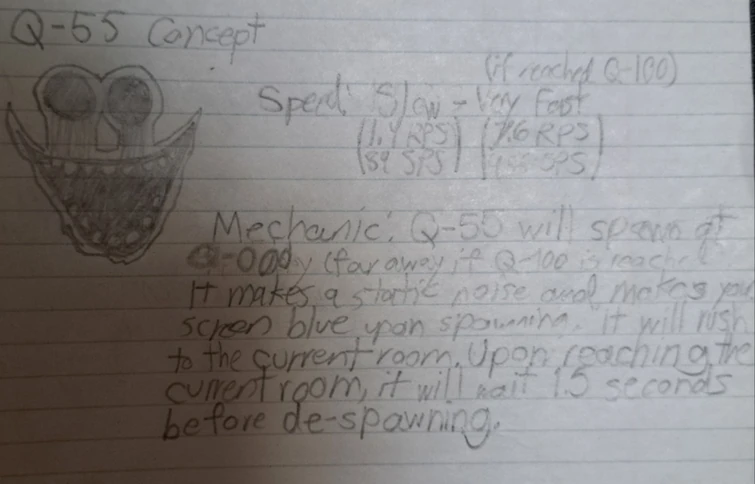 Q-55 Concept
(if reached Q-100)
Speed: Slow - Very Fast
(1.4 RPS) (7.6 RPS)
(84 SPS) SPS)
Mechanic: Q-55 will spawn at
(far away if Q-100 is reached
It makes a static noise and makes your
screen blue upon spawning. It will rush
to the current room. Upon reaching the
current room, it will wait 1.5 seconds
before de-spawning.